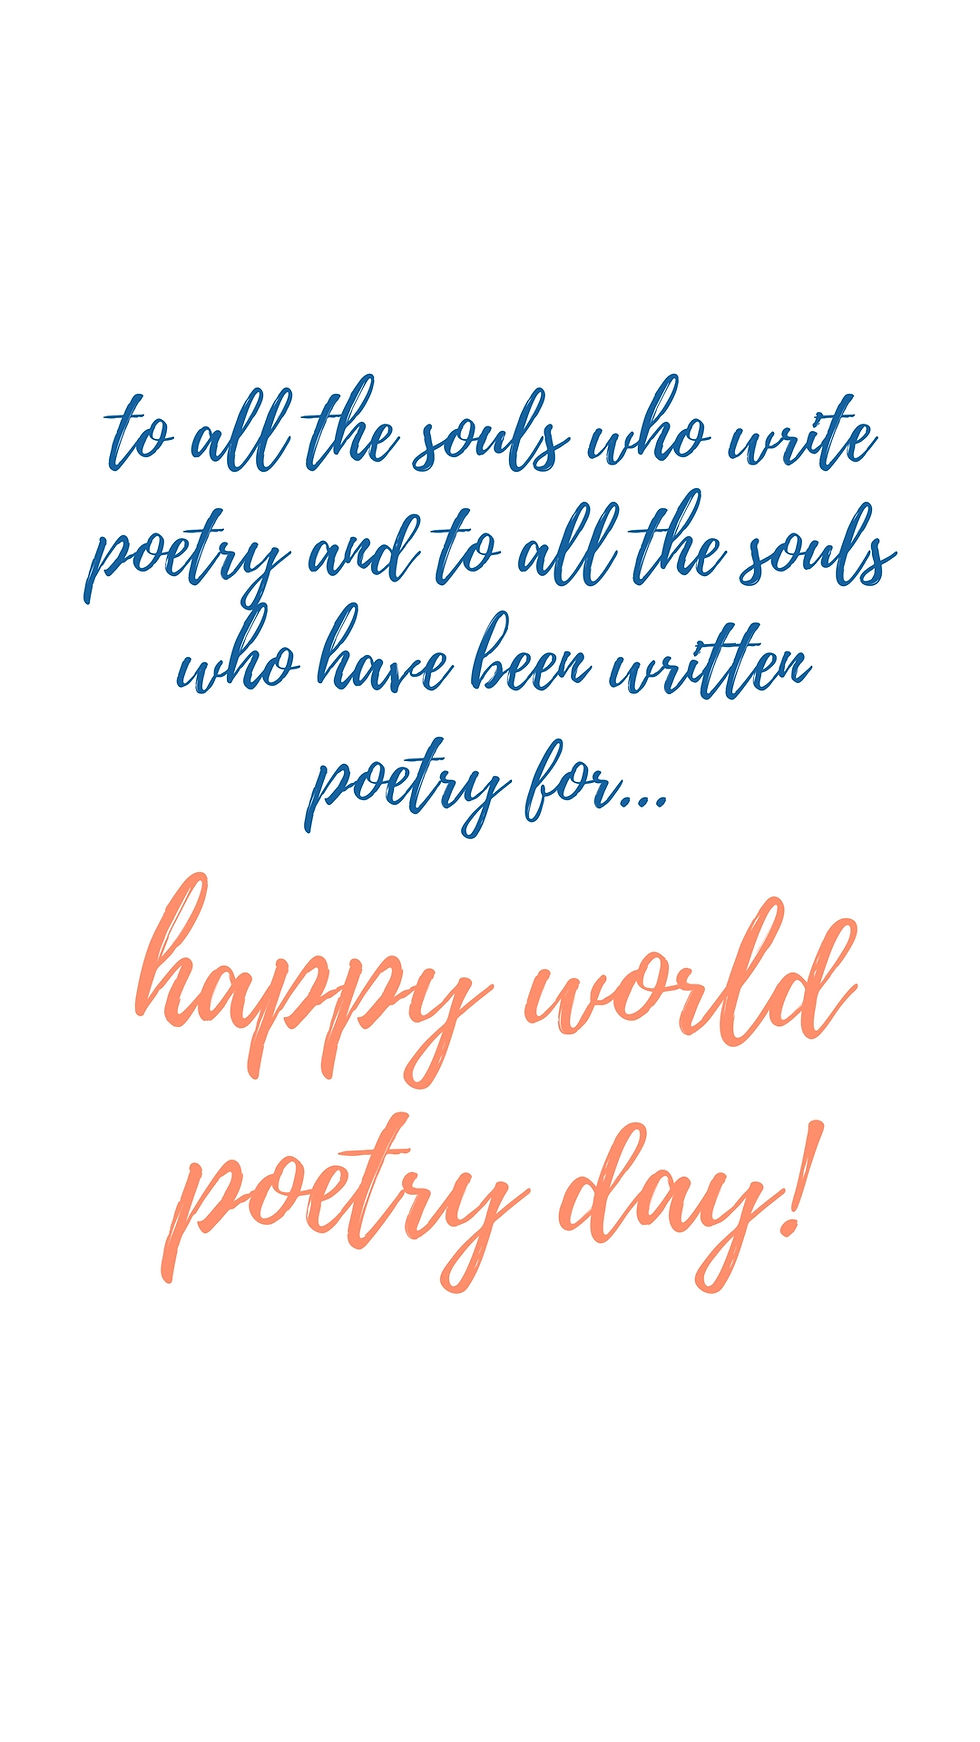 to all the souls who write
poetry and to all the souls
who have been written
poetry for...
happy world
poetry day!